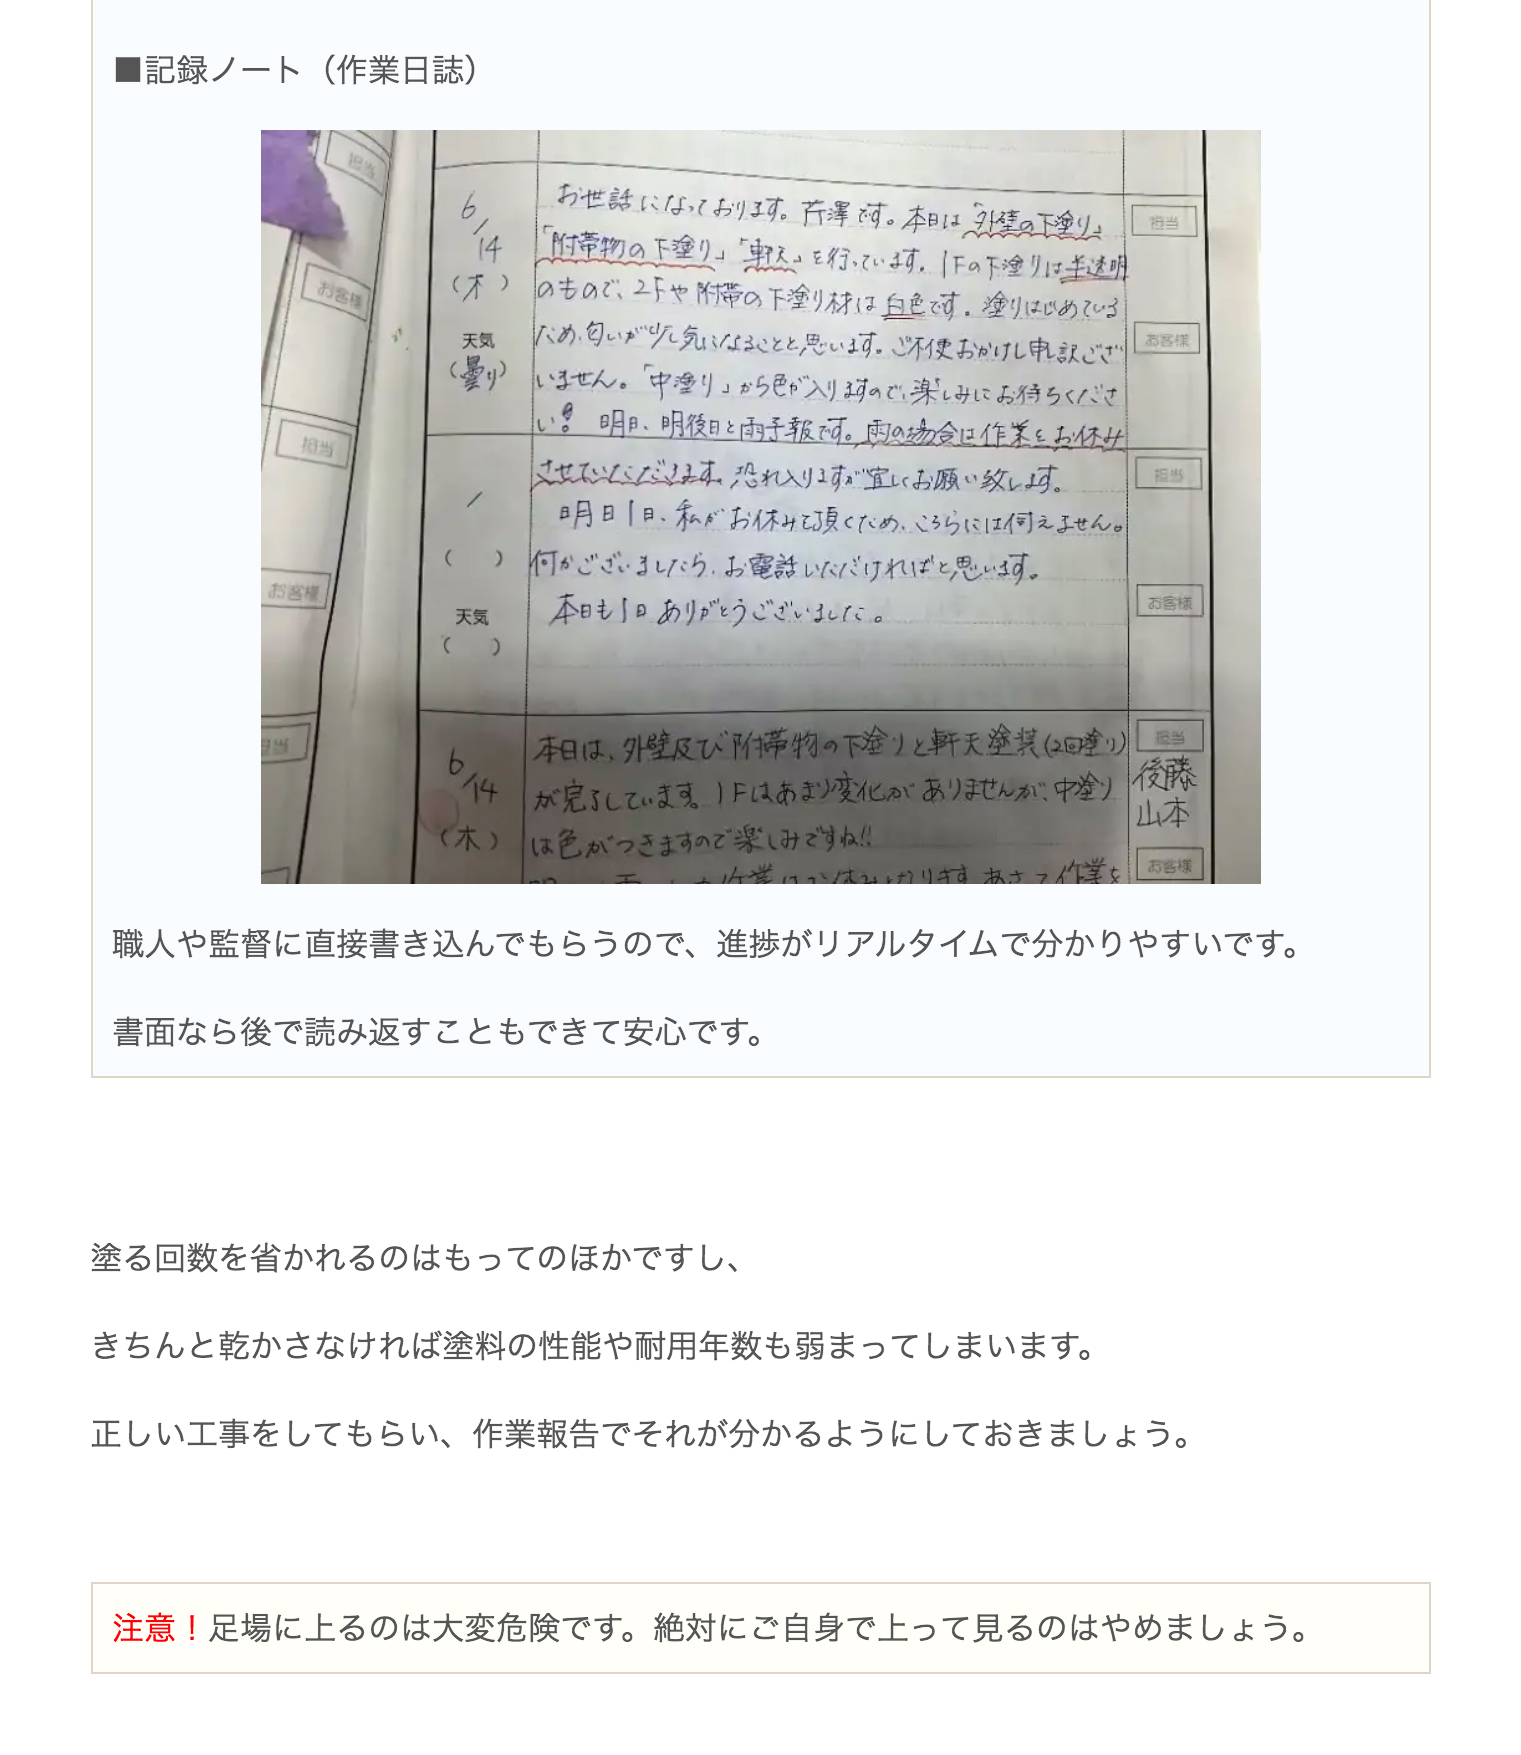 ■記録ノート（作業日誌）
担当
お客様
担当
お客様
担当
6/14
（木）
天気
（曇り）
お世話になっております。芹澤です。本日は「外壁の下塗り」
「附帯物の下塗り」「軒天」を行っています。1Fの下塗りは半透明
のもので、2Fや附帯の下塗り材は白色です。塗りはじめている
ため、匂いが少し気になることと思います。ご不便おかけし申し訳ござ
いません。「中塗り」から色が入りますので、楽しみにお待ちくださ
い！ 明日、明後日と雨予報です。雨の場合は作業をお休み
担当
お客様
/
（ ）
天気
（ ）
させていただきます。恐れ入りますが宜しくお願い致します。
明日1日、私がお休みを頂くため、こちらには伺えません。
何かございましたら、お電話いただければと思います。
本日も1日ありがとうございました。
担当
お客様
6/14
（木）
本日は、外壁及び附帯物の下塗りと軒天塗装（2回塗り）
が完了しています。1Fはあまり変化がありませんが、中塗り
は色がつきますので楽しみですね!!
担当
後藤
山本
お客様
職人や監督に直接書き込んでもらうので、進捗がリアルタイムで分かりやすいです。
書面なら後で読み返すこともできて安心です。
塗る回数を省かれるのはもってのほかですし、
きちんと乾かさなければ塗料の性能や耐用年数も弱まってしまいます。
正しい工事をしてもらい、作業報告でそれが分かるようにしておきましょう。
注意！足場に上るのは大変危険です。絶対にご自身で上って見るのはやめましょう。